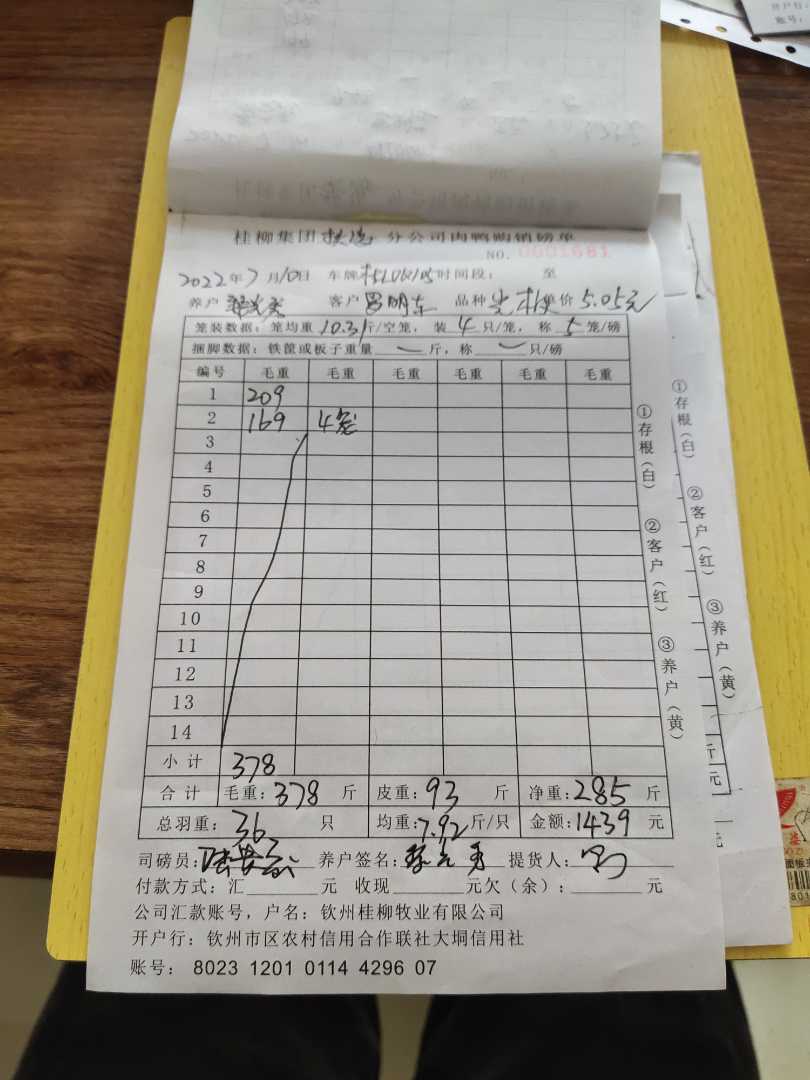 开户行:
账号:
桂柳集团 分公司肉鸭购销磅单
NO. 0001681
2022年7月10日 车牌 时间段: 至
养户 客户 罗明东 品种 单价 5.05元
笼装数据: 笼均重 10.31斤/空笼, 装 4 只/笼, 称 5 笼/磅
捆脚数据: 铁筐或板子重量 斤, 称 只/磅
编号 毛重 毛重 毛重 毛重 毛重 毛重
1 209
2 169 4笼
3
4
5
6
7
8
9
10
11
12
13
14
小计 378
合计 毛重: 378 斤 皮重: 93 斤 净重: 285 斤
总羽重: 36 只 均重: 7.92 斤/只 金额: 1439 元
司磅员: 养户签名: 提货人:
付款方式: 汇 元 收现 元欠(余): 元
公司汇款账号, 户名: 钦州桂柳牧业有限公司
开户行: 钦州市区农村信用合作联社大垌信用社
账号: 8023 1201 0114 4296 07
①存根(白) ②客户(红) ③养户(黄)
①存根(白) ②客户(红) ③养户(黄)
斤
元
元